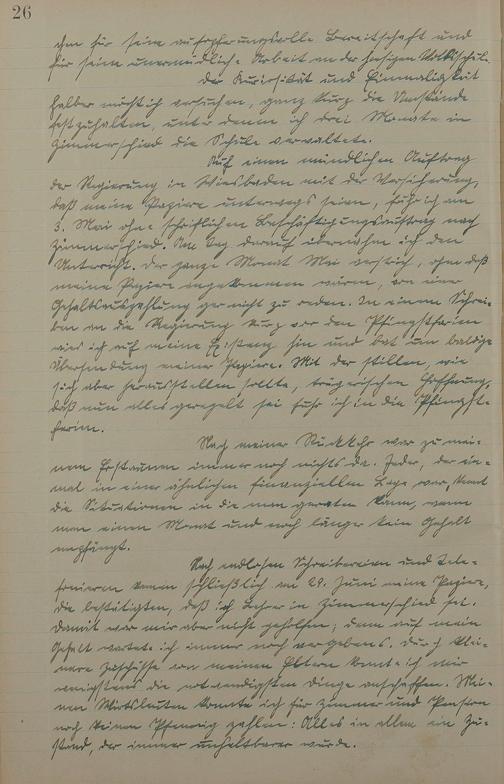 26
ihm für seine aufopferungsvolle Bereitschaft und
für seine unermüdliche Arbeit an der hiesigen Volksschule.
Der Kuriosität und Einmaligkeit
halber möchte ich versuchen, ganz kurz die Umstände
festzuhalten, unter denen ich drei Monate in
Zimmerschied die Schule verwaltete.
Auf einen mündlichen Auftrag
der Regierung in Wiesbaden mit der Versicherung,
daß meine Papiere unterwegs seien, fuhr ich am
3. Mai ohne schriftlichen Beschäftigungsauftrag nach
Zimmerschied. Am Tag darauf übernahm ich den
Unterricht. Der ganze Monat Mai verstrich, ohne daß
meine Papiere angekommen wären, von einer
Gehaltsauszahlung gar nicht zu reden. In einem Schrei-
ben an die Regierung kurz vor den Pfingstferien
wies ich auf meine Existenz hin und bat um baldige
Übersendung meiner Papiere. Mit der stillen, wie
sich aber herausstellen sollte, trügerischen Hoffnung,
daß nun alles geregelt sei fuhr ich in die Pfingst-
ferien.
Nach meiner Rückkehr war zu mei-
nem Erstaunen immer noch nichts da. Jeder, der ein-
mal in einer ähnlichen finanziellen Lage war, kennt
die Situationen in die man geraten kann, wenn
man einen Monat und noch länger kein Gehalt
empfängt.
Nach endlosen Schreibereien und Tele-
fonieren kamen schließlich am 29. Juni meine Papiere,
die bestätigten, daß ich Lehrer in Zimmerschied sei.
Damit war mir aber nicht geholfen; denn auf mein
Gehalt wartete ich immer noch vergebens. Durch klei-
nere Zuschüsse von meinen Eltern konnte ich mir
wenigstens die notwendigsten Dinge anschaffen. Mei-
nen Wirtsleuten konnte ich für Zimmer und Pension
noch keinen Pfennig zahlen: Alles in allem ein Zu-
stand, der immer unhaltbarer wurde.